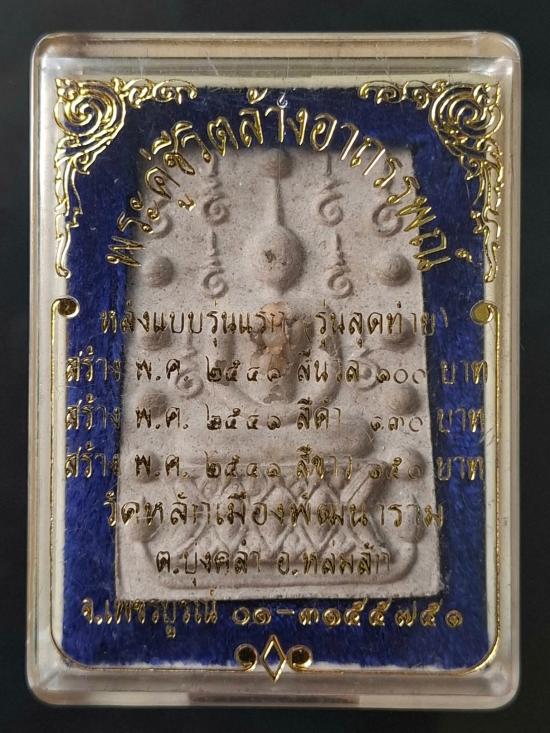 พระคู่ชีวิตล้างอาถรรพณ์
หลังแบบรุ่นแรก รุ่นสุดท้าย
สร้าง พ.ศ. ๒๕๔๑ สีนวล ๑๐๐ บาท
สร้าง พ.ศ. ๒๕๔๑ สีดำ ๑๓๐ บาท
สร้าง พ.ศ. ๒๕๔๑ สีขาว ๑๕๐ บาท
วัดหลักเมืองพัฒนาราม
ต.บุ่งคล้า อ.หล่มสัก
จ.เพชรบูรณ์ ๐๑-๓๑๕๕๗๕๑